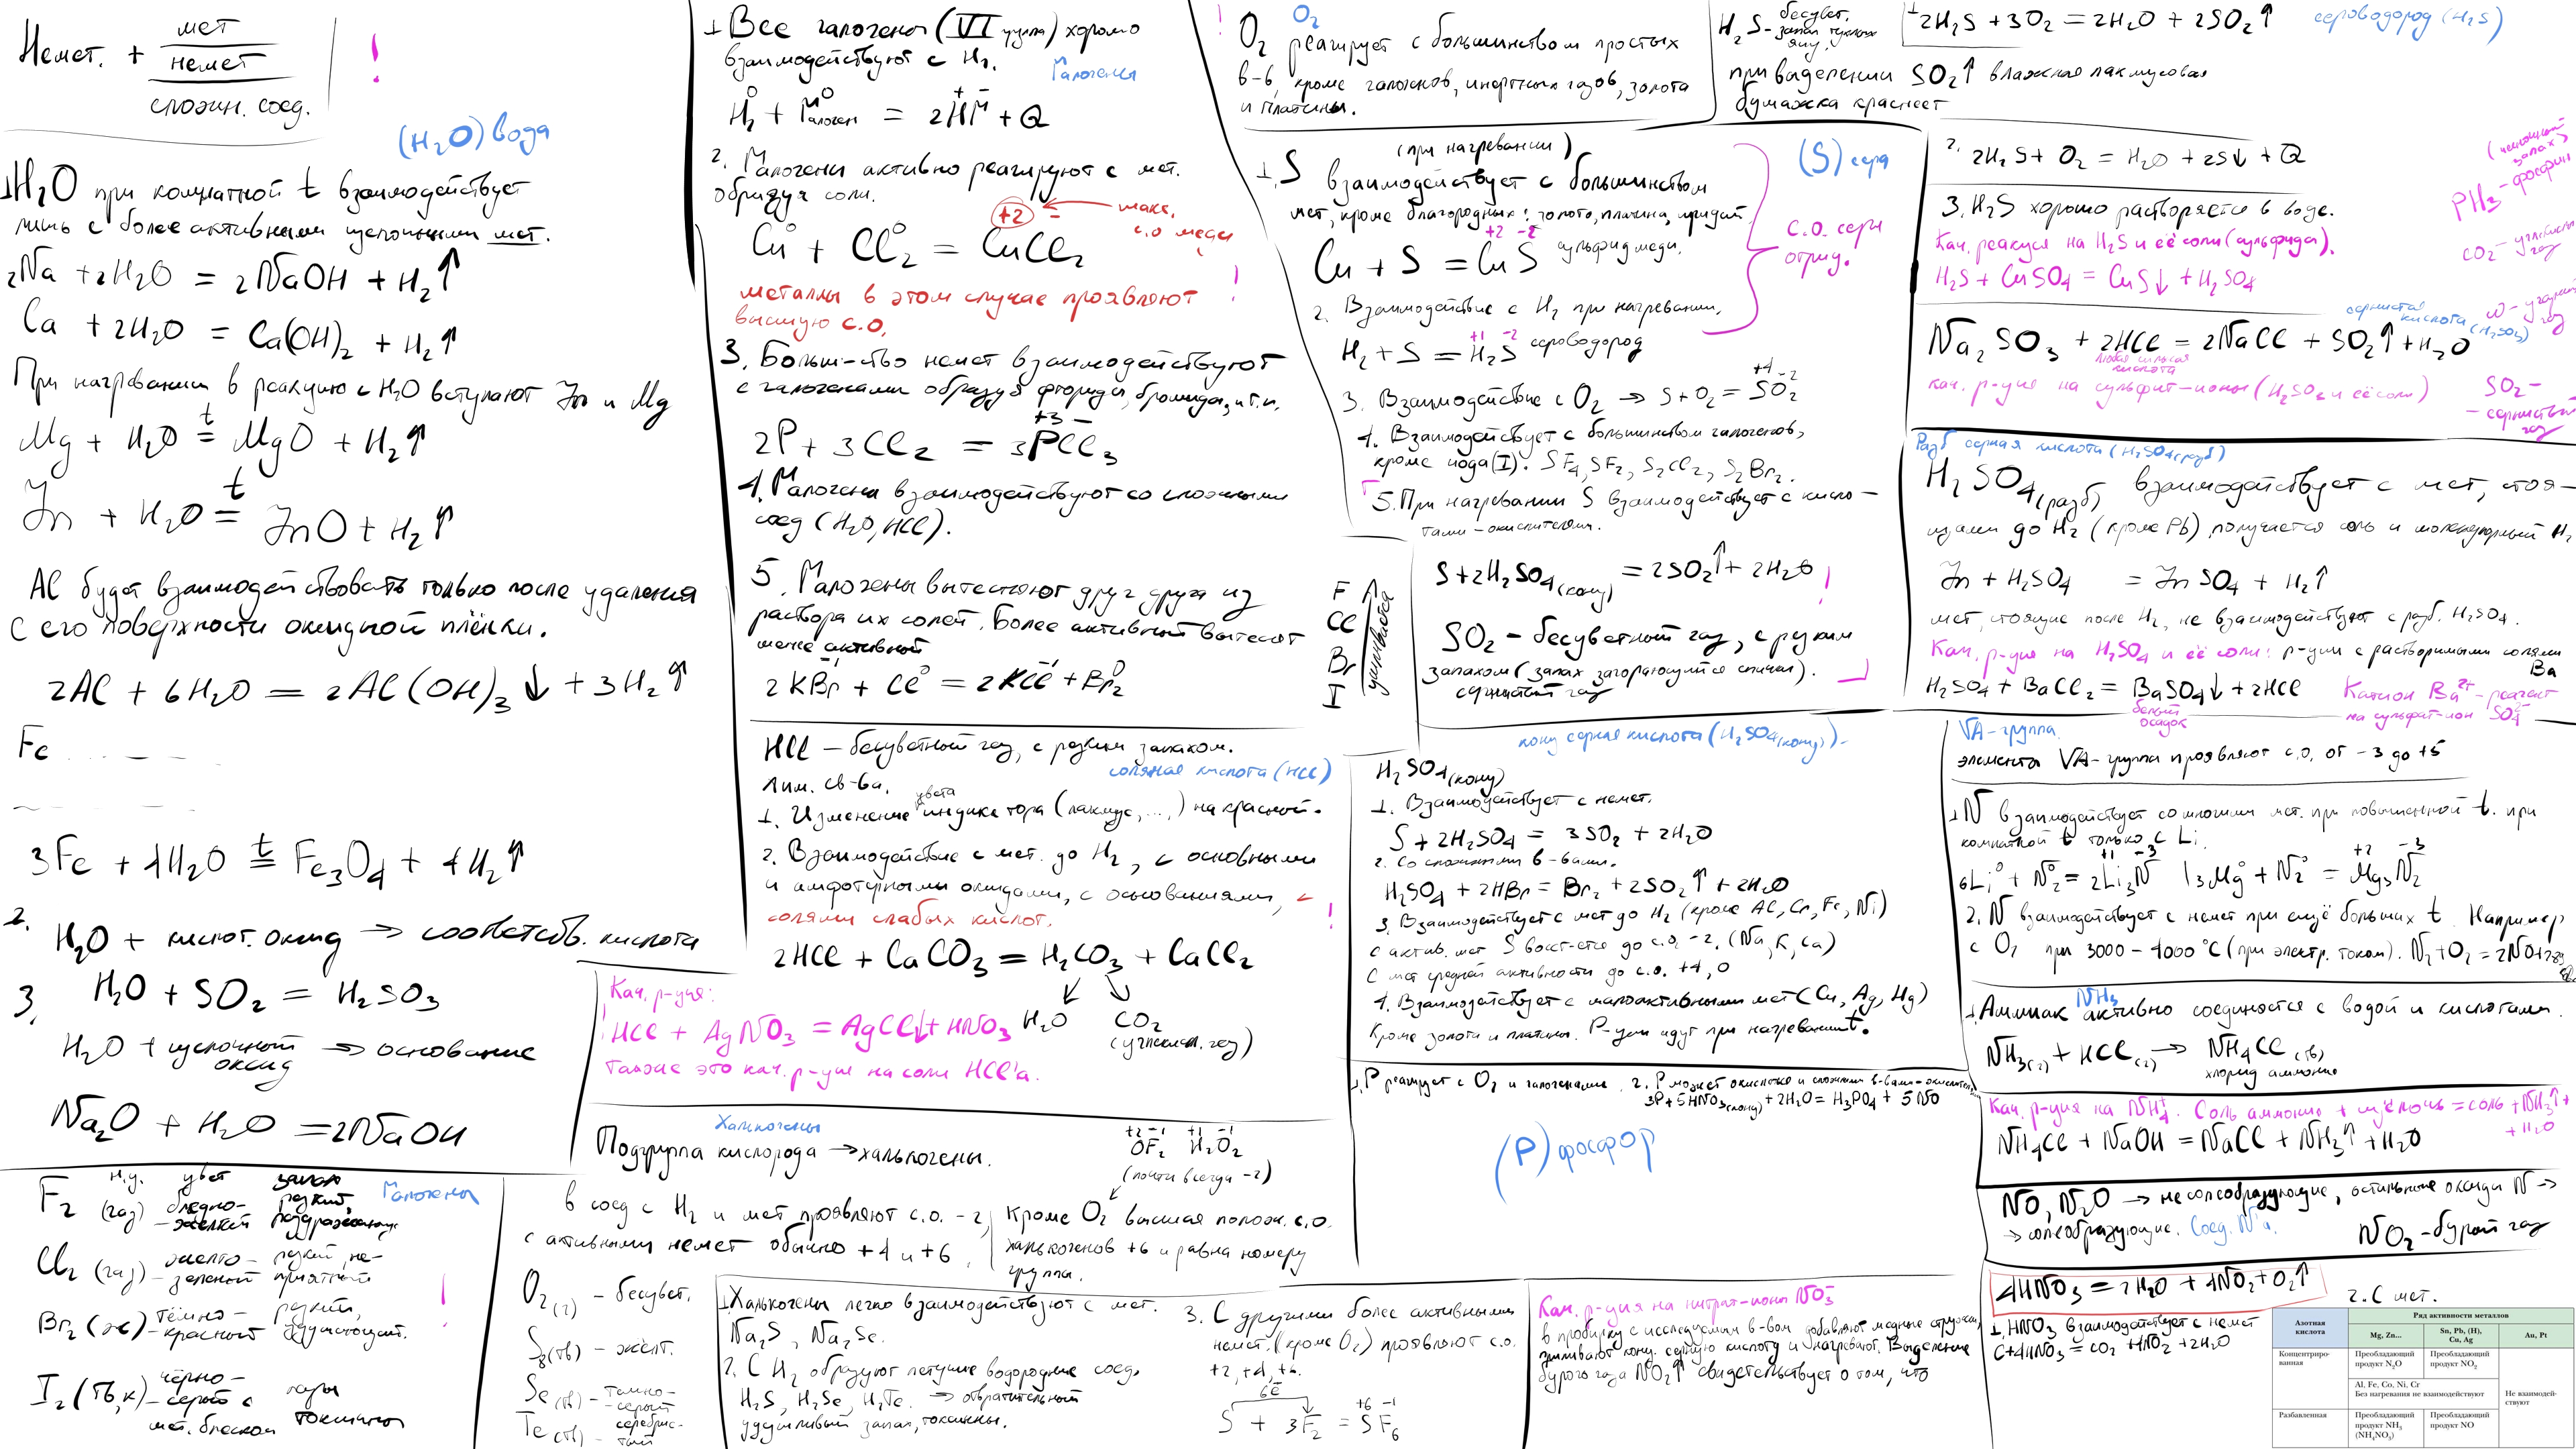 Немет. + мет
немет
сложн. соед.
!
(H₂O) вода
1. H₂O при комнатной t взаимодействует
лишь с более активными щелочными мет.
2Na + 2H₂O = 2NaOH + H₂↑
Ca + 2H₂O = Ca(OH)₂ + H₂↑
При нагревании в реакцию с H₂O вступают Zn и Mg
Mg + H₂O =ᵗ MgO + H₂↑
Zn + H₂O =ᵗ ZnO + H₂↑
Al будет взаимодействовать только после удаления
с его поверхности оксидной плёнки.
2Al + 6H₂O = 2Al(OH)₃↓ + 3H₂↑
Fe
3Fe + 4H₂O =ᵗ Fe₃O₄ + 4H₂↑
2. H₂O + кислот. оксид → соответств. кислота
3. H₂O + SO₂ = H₂SO₃
H₂O + щелочный оксид → основание
Na₂O + H₂O = 2NaOH
н.у. цвет запах
Галогены
F₂ (газ) бледно-желтый резкий, раздражающ.
Cl₂ (газ) – желто-зеленый резкий, неприятный
Br₂ (ж) – тёмно-красный резкий, удушающий.
I₂ (тв, к) – чёрно-серый с мет. блеском пары токсичны
!
1. Все галогены (VI группа) хорошо
взаимодействуют с H₂.
Галогены
H₂⁰ + Г⁰алоген = 2H⁺Г⁻ + Q
2. Галогены активно реагируют с мет.
образуя соли.
+2 – ← макс. с.о меди
Cu⁰ + Cl₂⁰ = CuCl₂
металлы в этом случае проявляют
высшую с.о.
!
3. Больш-ство немет взаимодействуют
с галогенами образуя фториды, бромиды, и т.п.
+3 –
2P + 3Cl₂ = 3PCl₃
4. Галогены взаимодействуют со сложными
соед (H₂O, HCl).
5. Галогены вытесняют друг друга из
раствора их солей. Более активный вытеснят
менее активный
2KBr⁻ + Cl⁰ = 2KCl⁻ + Br₂⁰
F
Cl
Br
I
HCl – бесцветный газ, с резким запахом.
соляная кислота (HCl)
Хим. св-ва.
1. Изменение цвета индикатора (лакмус, ...) на красный.
2. Взаимодействие с мет. до H₂, с основными
и амфотерными оксидами, с основаниями, с
солями слабых кислот.
!
2HCl + CaCO₃ = H₂CO₃ + CaCl₂
H₂O CO₂
(углекисл. газ)
Кач. р-ция:
HCl + AgNO₃ = AgCl↓ + HNO₃
Также это кач. р-ция на соли HCl'а.
Халькогены
Подгруппа кислорода → халькогены.
+2 –1 +1 –1
OF₂ H₂O₂
(почти всегда –2)
в соед с H₂ и мет проявляют с.о. –2,
с активными немет обычно +4 и +6.
Кроме O₂ высшая полож. с.о.
халькогенов +6 и равна номеру
группы.
O₂ (г) – бесцвет.
S₈ (тв) – желт.
Se (тв) – темно-серый
Te (тв) – серебристый
1. Халькогены легко взаимодействуют с мет.
Na₂S, Na₂Se.
2. С H₂ образуют летучие водородные соед.
H₂S, H₂Se, H₂Te. → отвратительный
удушливый запах, токсичны.
3. С другими более активными
немет. (кроме O₂) проявляют с.о.
+2, +4, +6.
6ē
+6 –1
S + 3F₂ = SF₆
!
O₂
O₂ реагирует с большинством простых
в-в, кроме галогенов, инертных газов, золота
и платины.
(при нагревании)
(S) сера
1. S взаимодействует с большинством
мет, кроме благородных: золото, платина, иридий.
+2 –2
Cu + S = CuS сульфид меди.
с.о. серы
отриц.
2. Взаимодействие с H₂ при нагревании.
+1 –2
H₂ + S = H₂S сероводород
3. Взаимодействие с O₂ → S + O₂ = S⁺⁴O₂⁻²
4. Взаимодействует с большинством галогенов,
кроме иода (I). SF₄, SF₂, S₂Cl₂, S₂Br₂.
5. При нагревании S взаимодействует с кисло-
тами-окислителями.
S + 2H₂SO₄(конц) = 2SO₂↑ + 2H₂O
!
SO₂ – бесцветный газ, с резким
запахом (запах загорающийся спички).
сернистый газ
конц серная кислота (H₂SO₄(конц)).
H₂SO₄(конц)
1. Взаимодействует с немет.
S + 2H₂SO₄ = 3SO₂ + 2H₂O
2. Со сложными в-вами.
H₂SO₄ + 2HBr = Br₂ + 2SO₂↑ + 2H₂O
3. Взаимодействует с мет до H₂ (кроме Al, Cr, Fe, Ni)
с актив. мет S восст-ется до с.о. –2. (Na, K, Ca)
С мет средней активности до с.о. +4, 0
4. Взаимодействует с малоактивными мет (Cu, Ag, Hg)
Кроме золота и платины. Р-ции идут при нагревании t.
1. P реагирует с O₂ и галогенами. 2. P может окисляться и сложными в-вами-окислител.
3P + 5HNO₃(конц) + 2H₂O = H₃PO₄ + 5NO
(P) фосфор
Кач. р-ция на нитрат-ионы NO₃⁻
в пробирку с исследуемым в-вом добавляют медные стружки,
приливают конц. серную кислоту и нагревают. Выделение
бурого газа NO₂↑ свидетельствует о том, что
H₂S – бесцвет, запах тухлых яиц.
1. 2H₂S + 3O₂ = 2H₂O + 2SO₂↑
сероводород (H₂S)
при выделении SO₂↑ влажная лакмусовая
бумажка краснеет
2. 2H₂S + O₂ = H₂O + 2S↓ + Q
3. H₂S хорошо растворяется в воде.
Кач. реакция на H₂S и её соли (сульфиды).
H₂S + CuSO₄ = CuS↓ + H₂SO₄
(чесночный запах)
PH₃ – фосфин
CO₂ – углекислый газ
сернистая кислота (H₂SO₃)
Na₂SO₃ + 2HCl = 2NaCl + SO₂↑ + H₂O
любая сильная кислота
кач. р-ция на сульфит-ионы (H₂SO₃ и её соли)
SO₂ –
– сернистый газ
Разб серная кислота (H₂SO₄(разб))
H₂SO₄(разб) взаимодействует с мет, стоя-
щими до H₂ (кроме Pb), получается соль и молекулярный H₂
Zn + H₂SO₄ = ZnSO₄ + H₂↑
мет, стоящие после H₂, не взаимодействует с разб. H₂SO₄.
Кач. р-ция на H₂SO₄ и её соли: р-ции с растворимыми солями
Ba
H₂SO₄ + BaCl₂ = BaSO₄↓ + 2HCl
белый осадок
Катион Ba²⁺ – реагент
на сульфат-ион SO₄²⁻
VA-группа
элементы VA-группы проявляют с.о. от –3 до +5
1. N взаимодействует со многими мет. при повышенной t. при
комнатной t только с Li.
6Li⁰ + N₂⁰ = 2Li₃⁺¹N⁻³ | 3Mg⁰ + N₂⁰ = Mg₃⁺²N₂⁻³
2. N взаимодействует с немет при ещё больших t. Например
с O₂ при 3000 – 4000 °C (при электр. током). N₂ + O₂ = 2NO
NH₃
1. Аммиак активно соединяется с водой и кислотами.
NH₃(г) + HCl(г) → NH₄Cl (тв)
хлорид аммония
Кач. р-ция на NH₄⁺. Соль аммония + щёлочь = соль + NH₃↑ +
+ H₂O
NH₄Cl + NaOH = NaCl + NH₃↑ + H₂O
NO, N₂O → несолеобразующие, остальные оксиды N →
→ солеобразующие. Соед. N'а.
NO₂ – бурый газ
4HNO₃ = 2H₂O + 4NO₂ + O₂↑
1. HNO₃ взаимодействует с немет
C + 4HNO₃ = CO₂ + 4NO₂ + 2H₂O
2. С мет.
Азотная кислота
Ряд активности металлов
Mg, Zn...
Sn, Pb, (H), Cu, Ag
Au, Pt
Концентриро-
ванная
Преобладающий продукт N₂O
Преобладающий продукт NO₂
Al, Fe, Co, Ni, Cr
Без нагревания не взаимодействуют
Не взаимодей-
ствуют
Разбавленная
Преобладающий продукт NH₃ (NH₄NO₃)
Преобладающий продукт NO